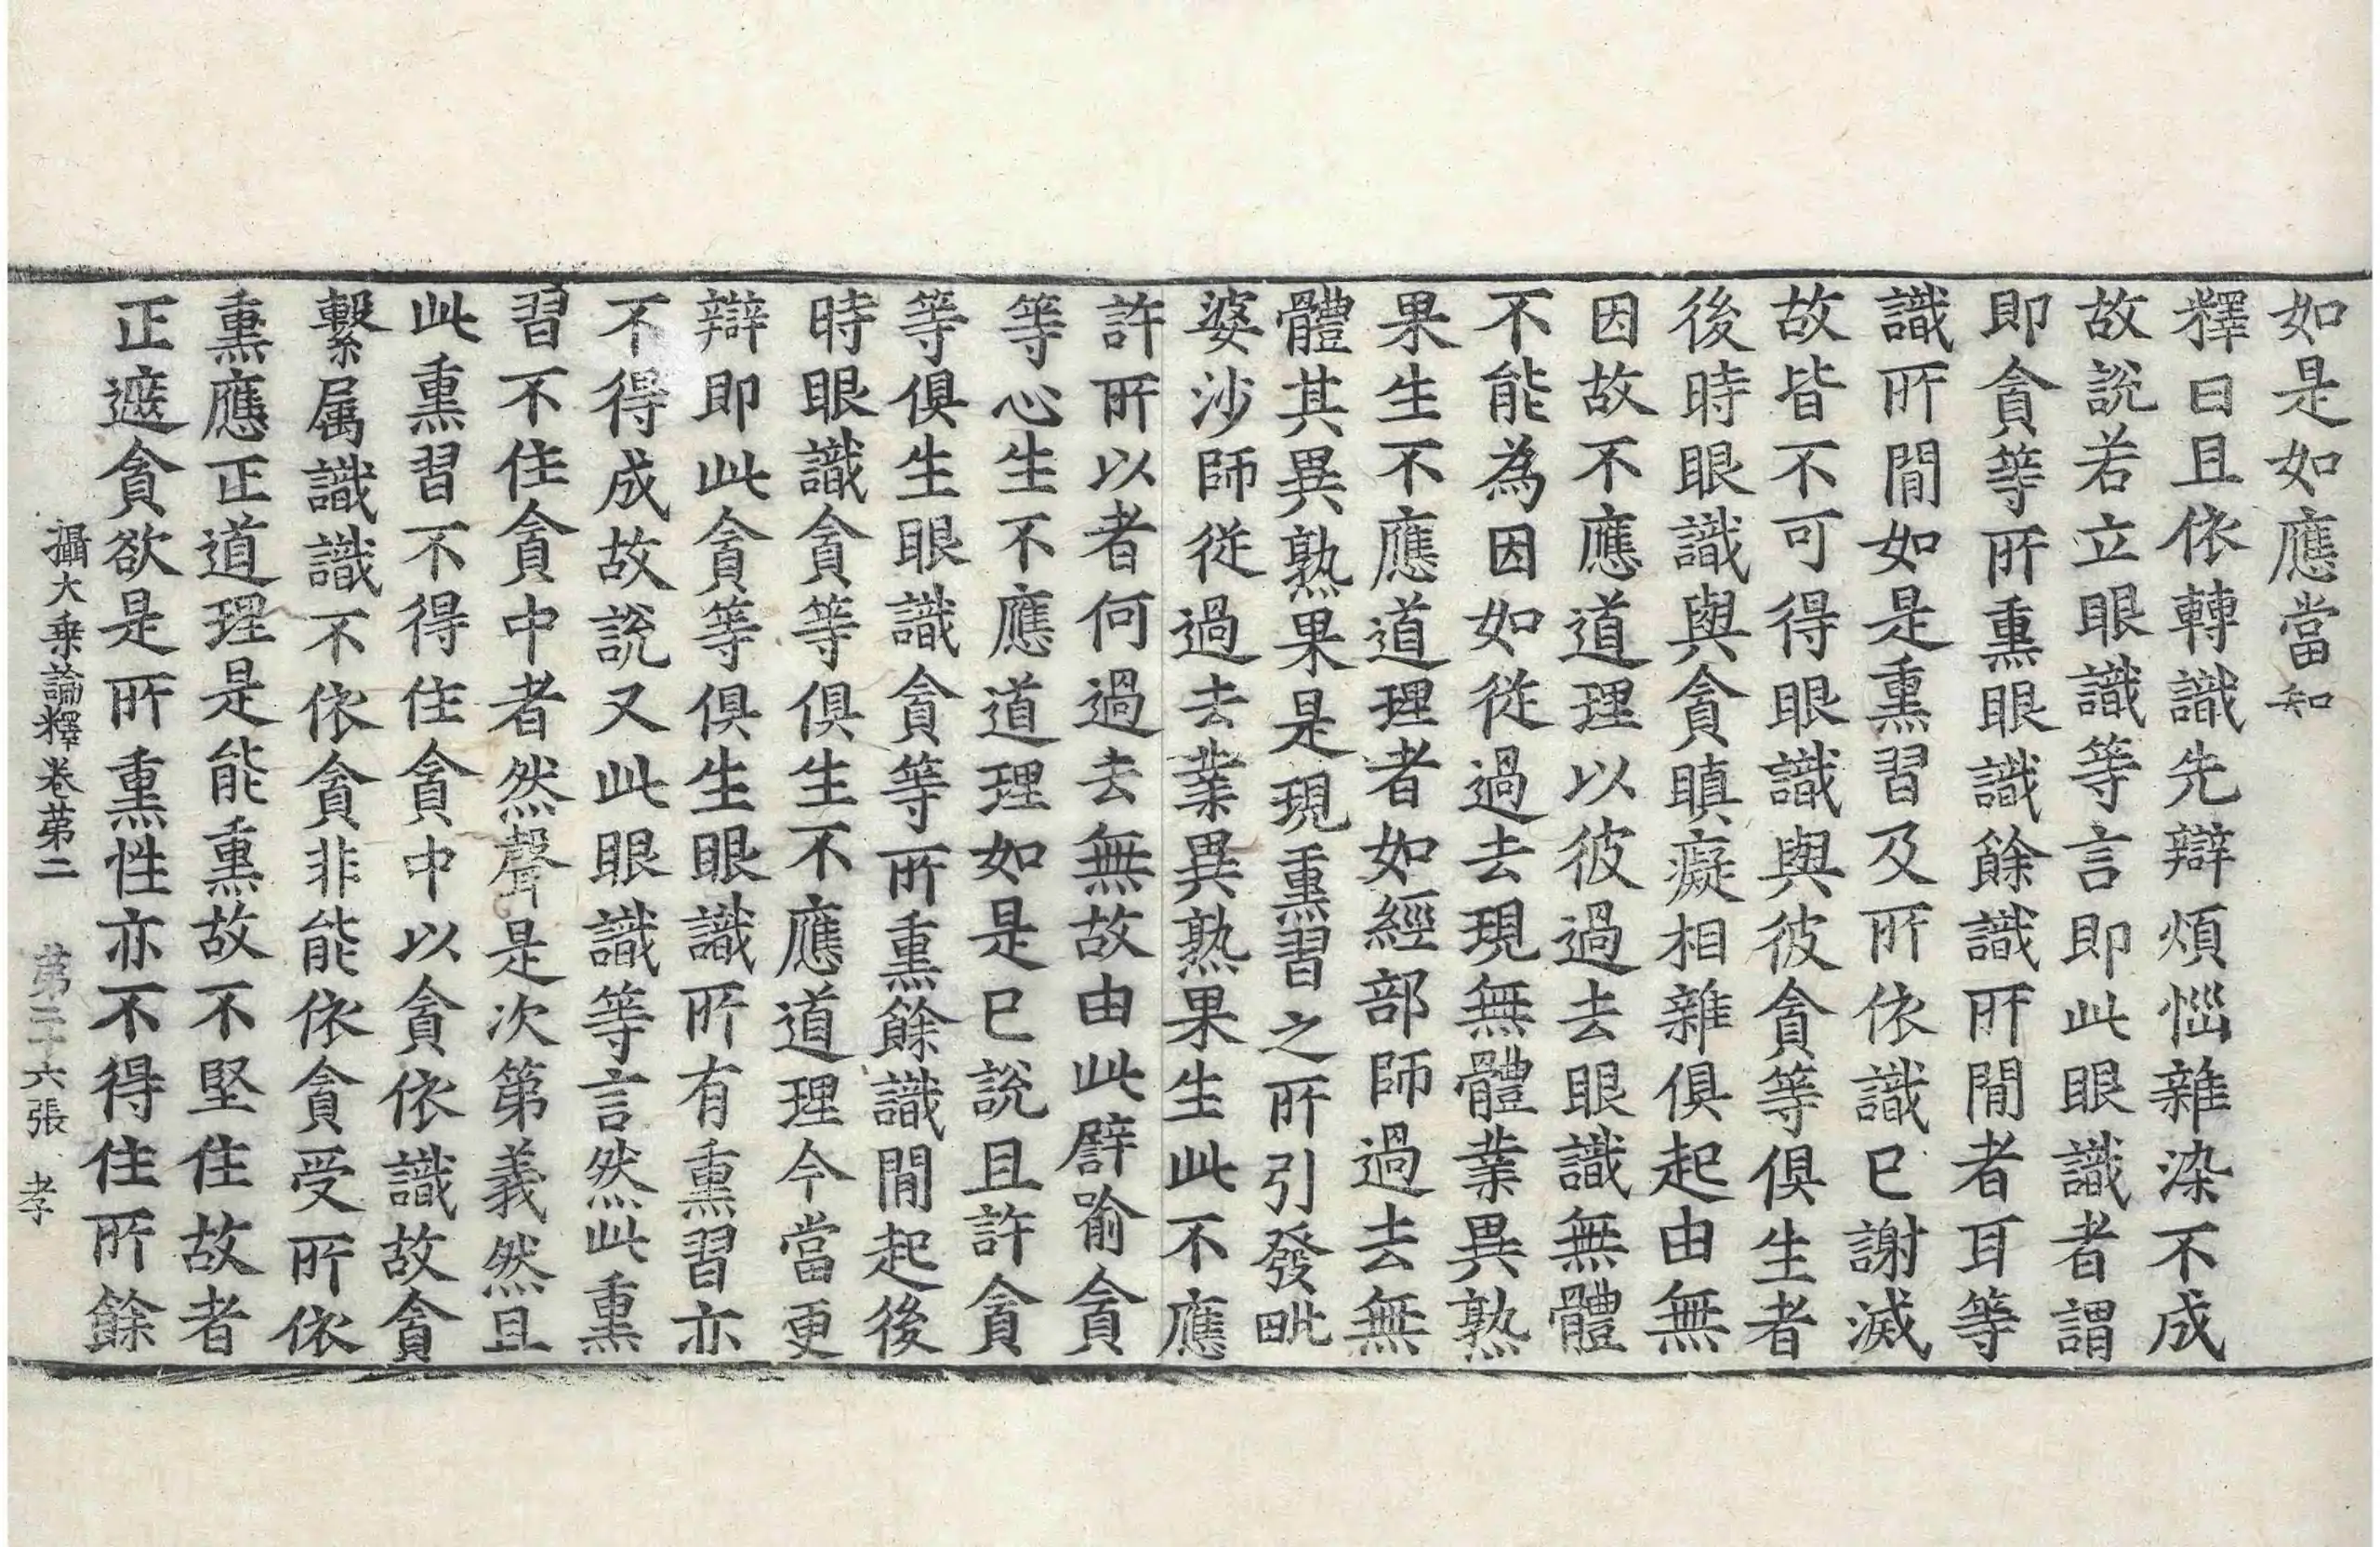 如是如應當知
釋曰且依轉識先辯煩惱雜染不成
故說若立眼識等言即此眼識者謂
即貪等所熏眼識餘識所閒者耳等
識所閒如是熏習及所依識已謝滅
故皆不可得眼識與彼貪等俱生者
後時眼識與貪瞋癡相雜俱起由無
因故不應道理以彼過去眼識無體
不能為因如從過去現無體業異熟
果生不應道理者如經部師過去無
體其異熟果是現熏習之所引發毗
婆沙師從過去業異熟果生此不應
許所以者何過去無故由此譬喻貪
等心生不應道理如是已說且許貪
等俱生眼識貪等所熏餘識閒起後
時眼識貪等俱生不應道理今當更
辯即此貪等俱生眼識所有熏習亦
不得成故說又此眼識等言然此熏
習不住貪中者然聲是次第義然且
此熏習不得住貪中以貪依識故貪
繫属識識不依貪非能依貪受所依
熏應正道理是能熏故不堅住故者
正遮貪欲是所熏性亦不得住所餘
攝大乗論釋卷苐二 苐二十六張 孝